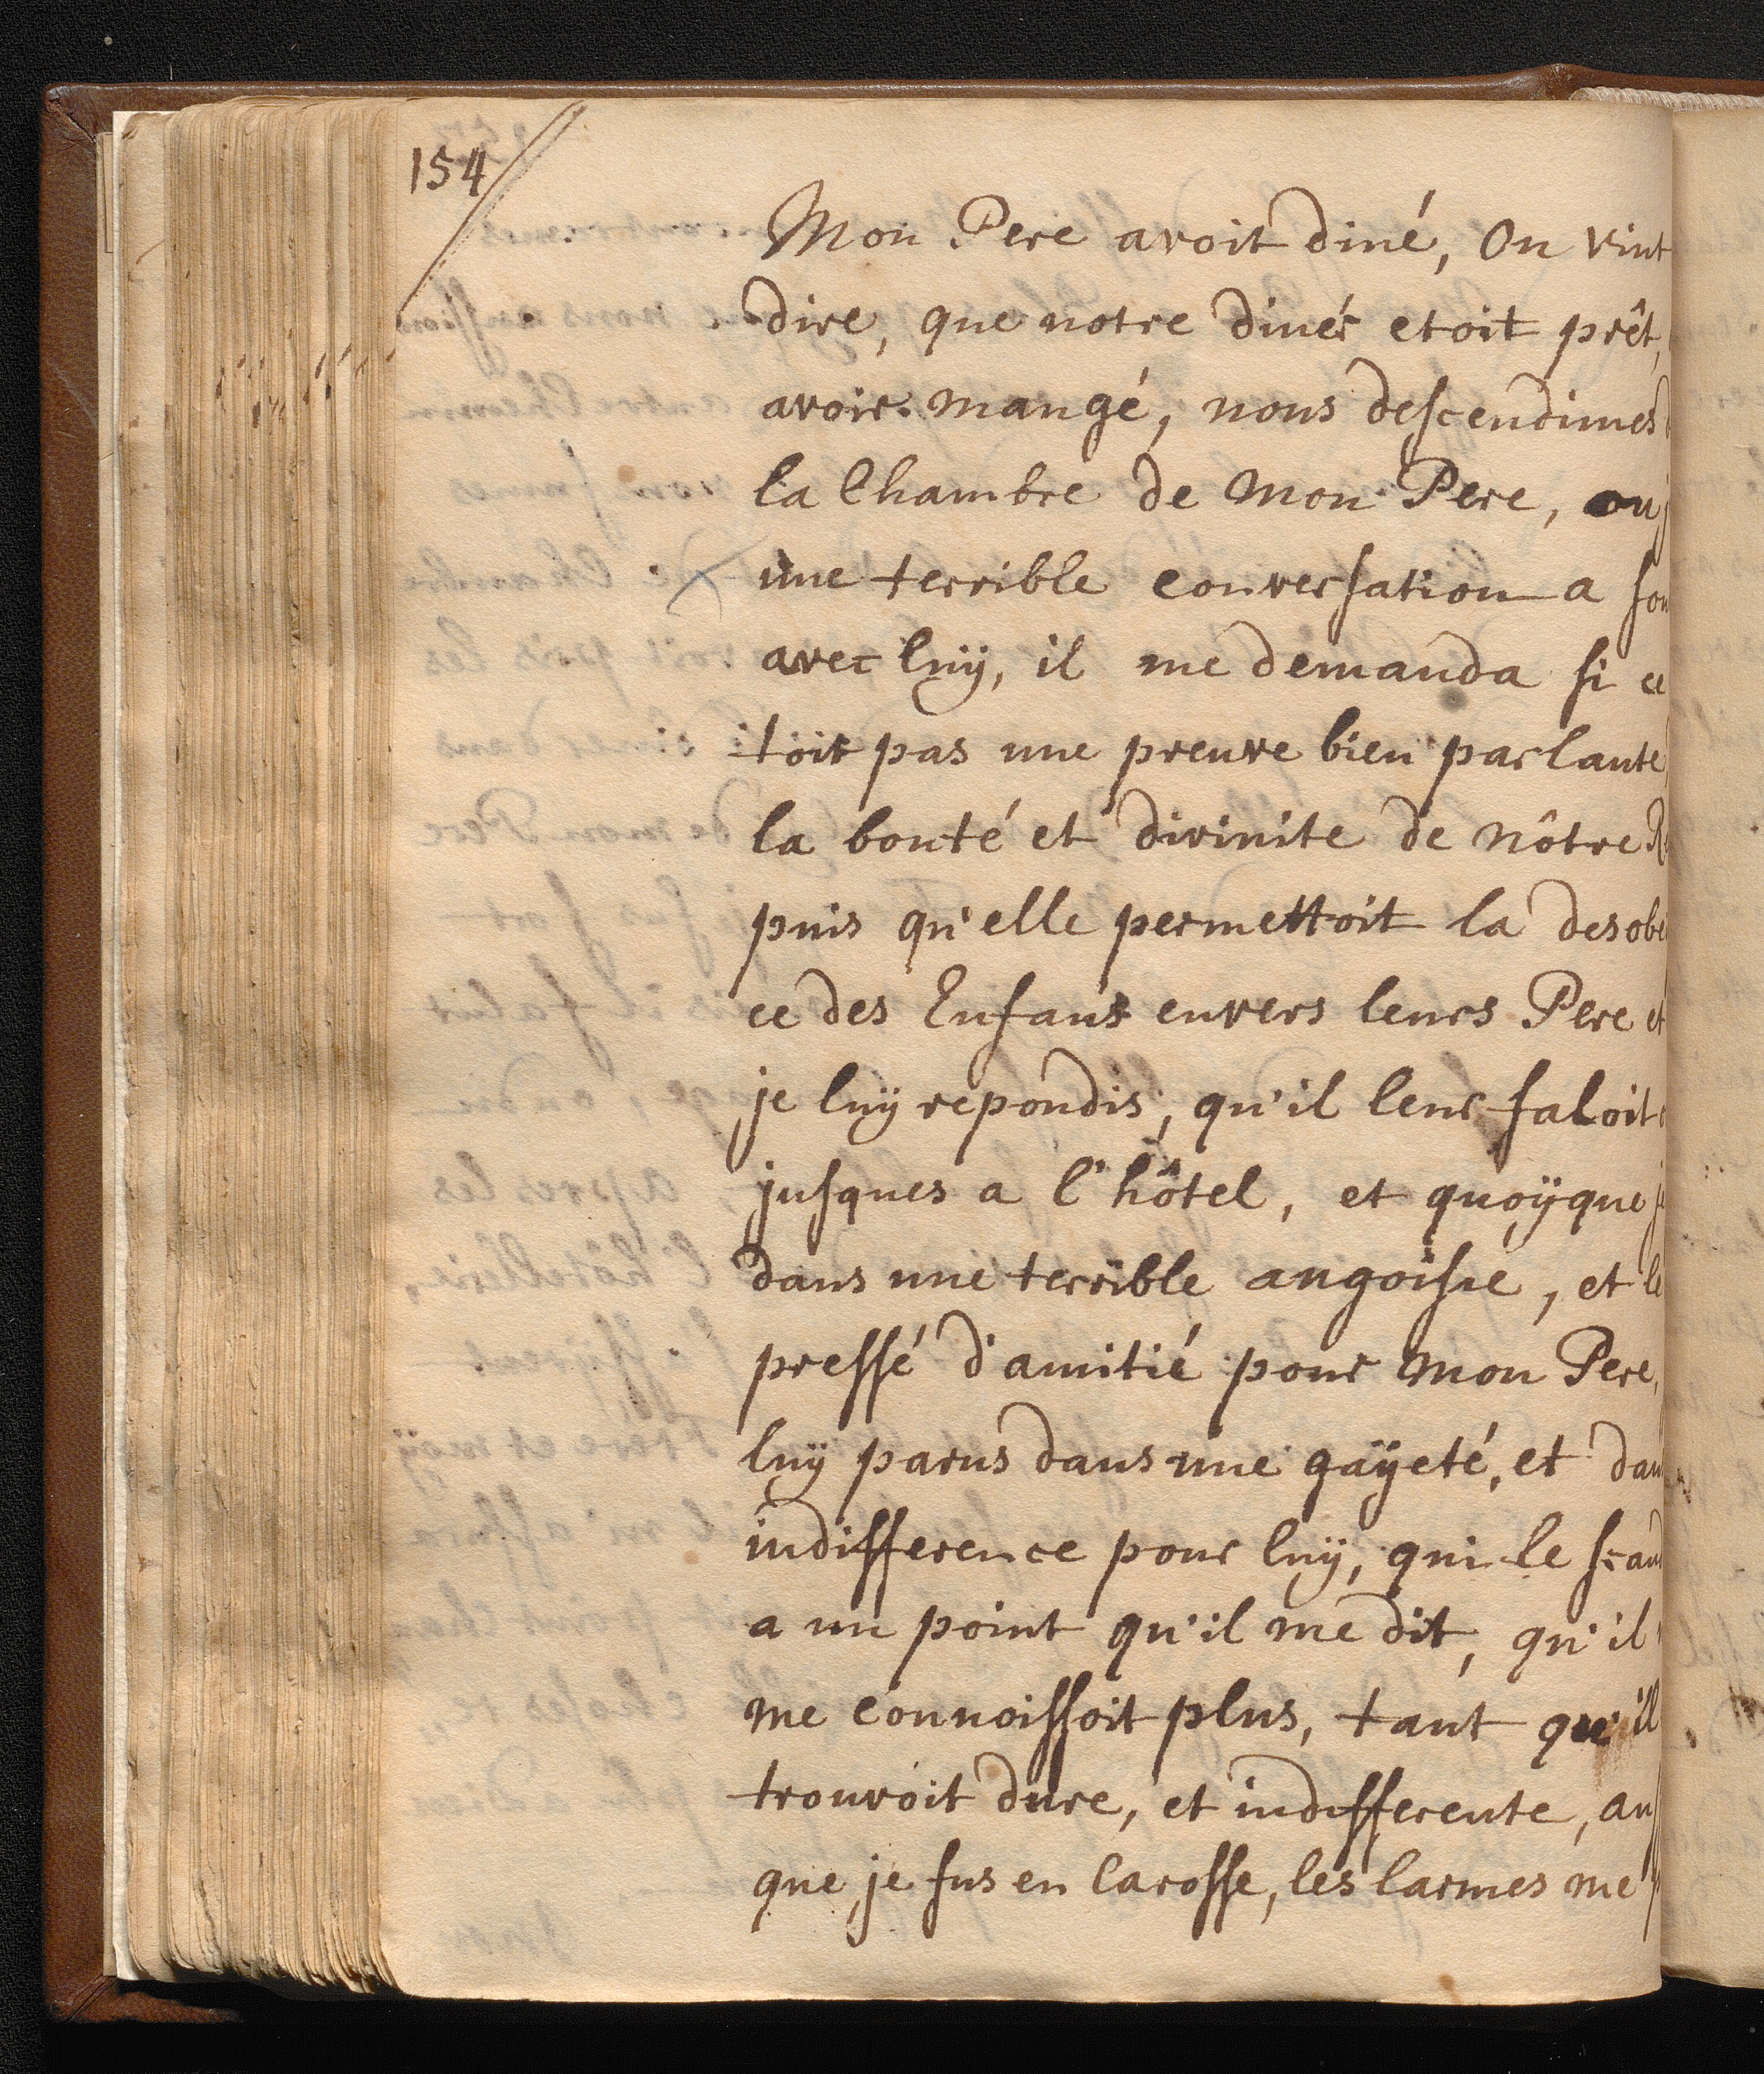 154
Mon Pere avoit diné, On vint
dire, que notre diner etoit prêt,
avoir mangé, nous descendimes
la Chambre de Mon Pere, ou j
une terrible conversation a sou
avec luÿ, il me demanda si ce
toit pas une preuve bien parlante
la bonté et divinite de nôtre Re
puis qu'elle permettoit la desobe
ce des Enfans envers leurs Pere et
je luÿ repondis, qu'il leur faloit
jusques a l'hôtel, et quoÿque je
dans une terrible angoisse, et le
pressé d'amitié pour Mon Pere,
luÿ parus dans une gaÿeté, et dan
indifference pour luÿ, qui le scand
a un point qu'il me dit, qu'il
me connoissoit plus, tant qu'il
trouvoit dure, et indifferente, aus
que je fus en Carosse, les larmes me